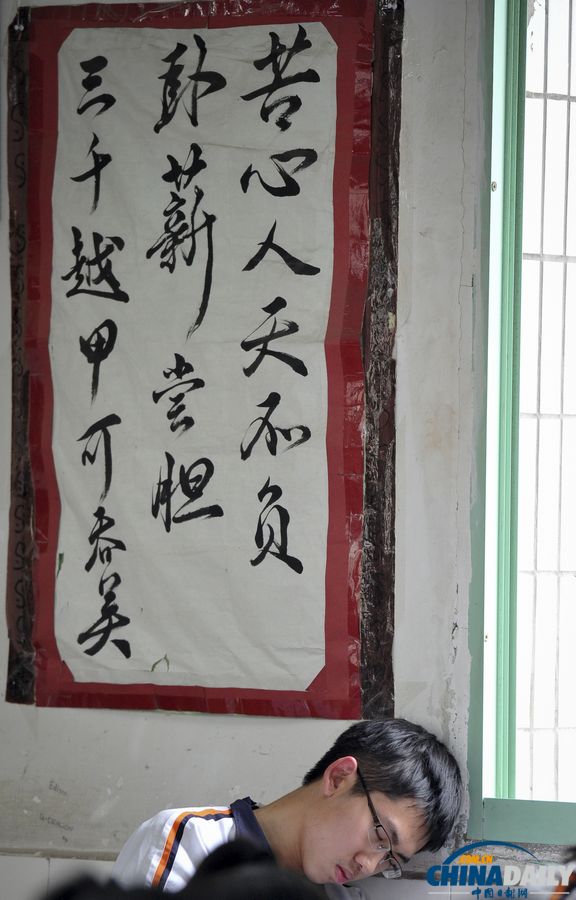 苦心人天不负
卧薪尝胆
三千越甲可吞吴
Edison
G-DRAGON
CHINADAILY
中国日报网